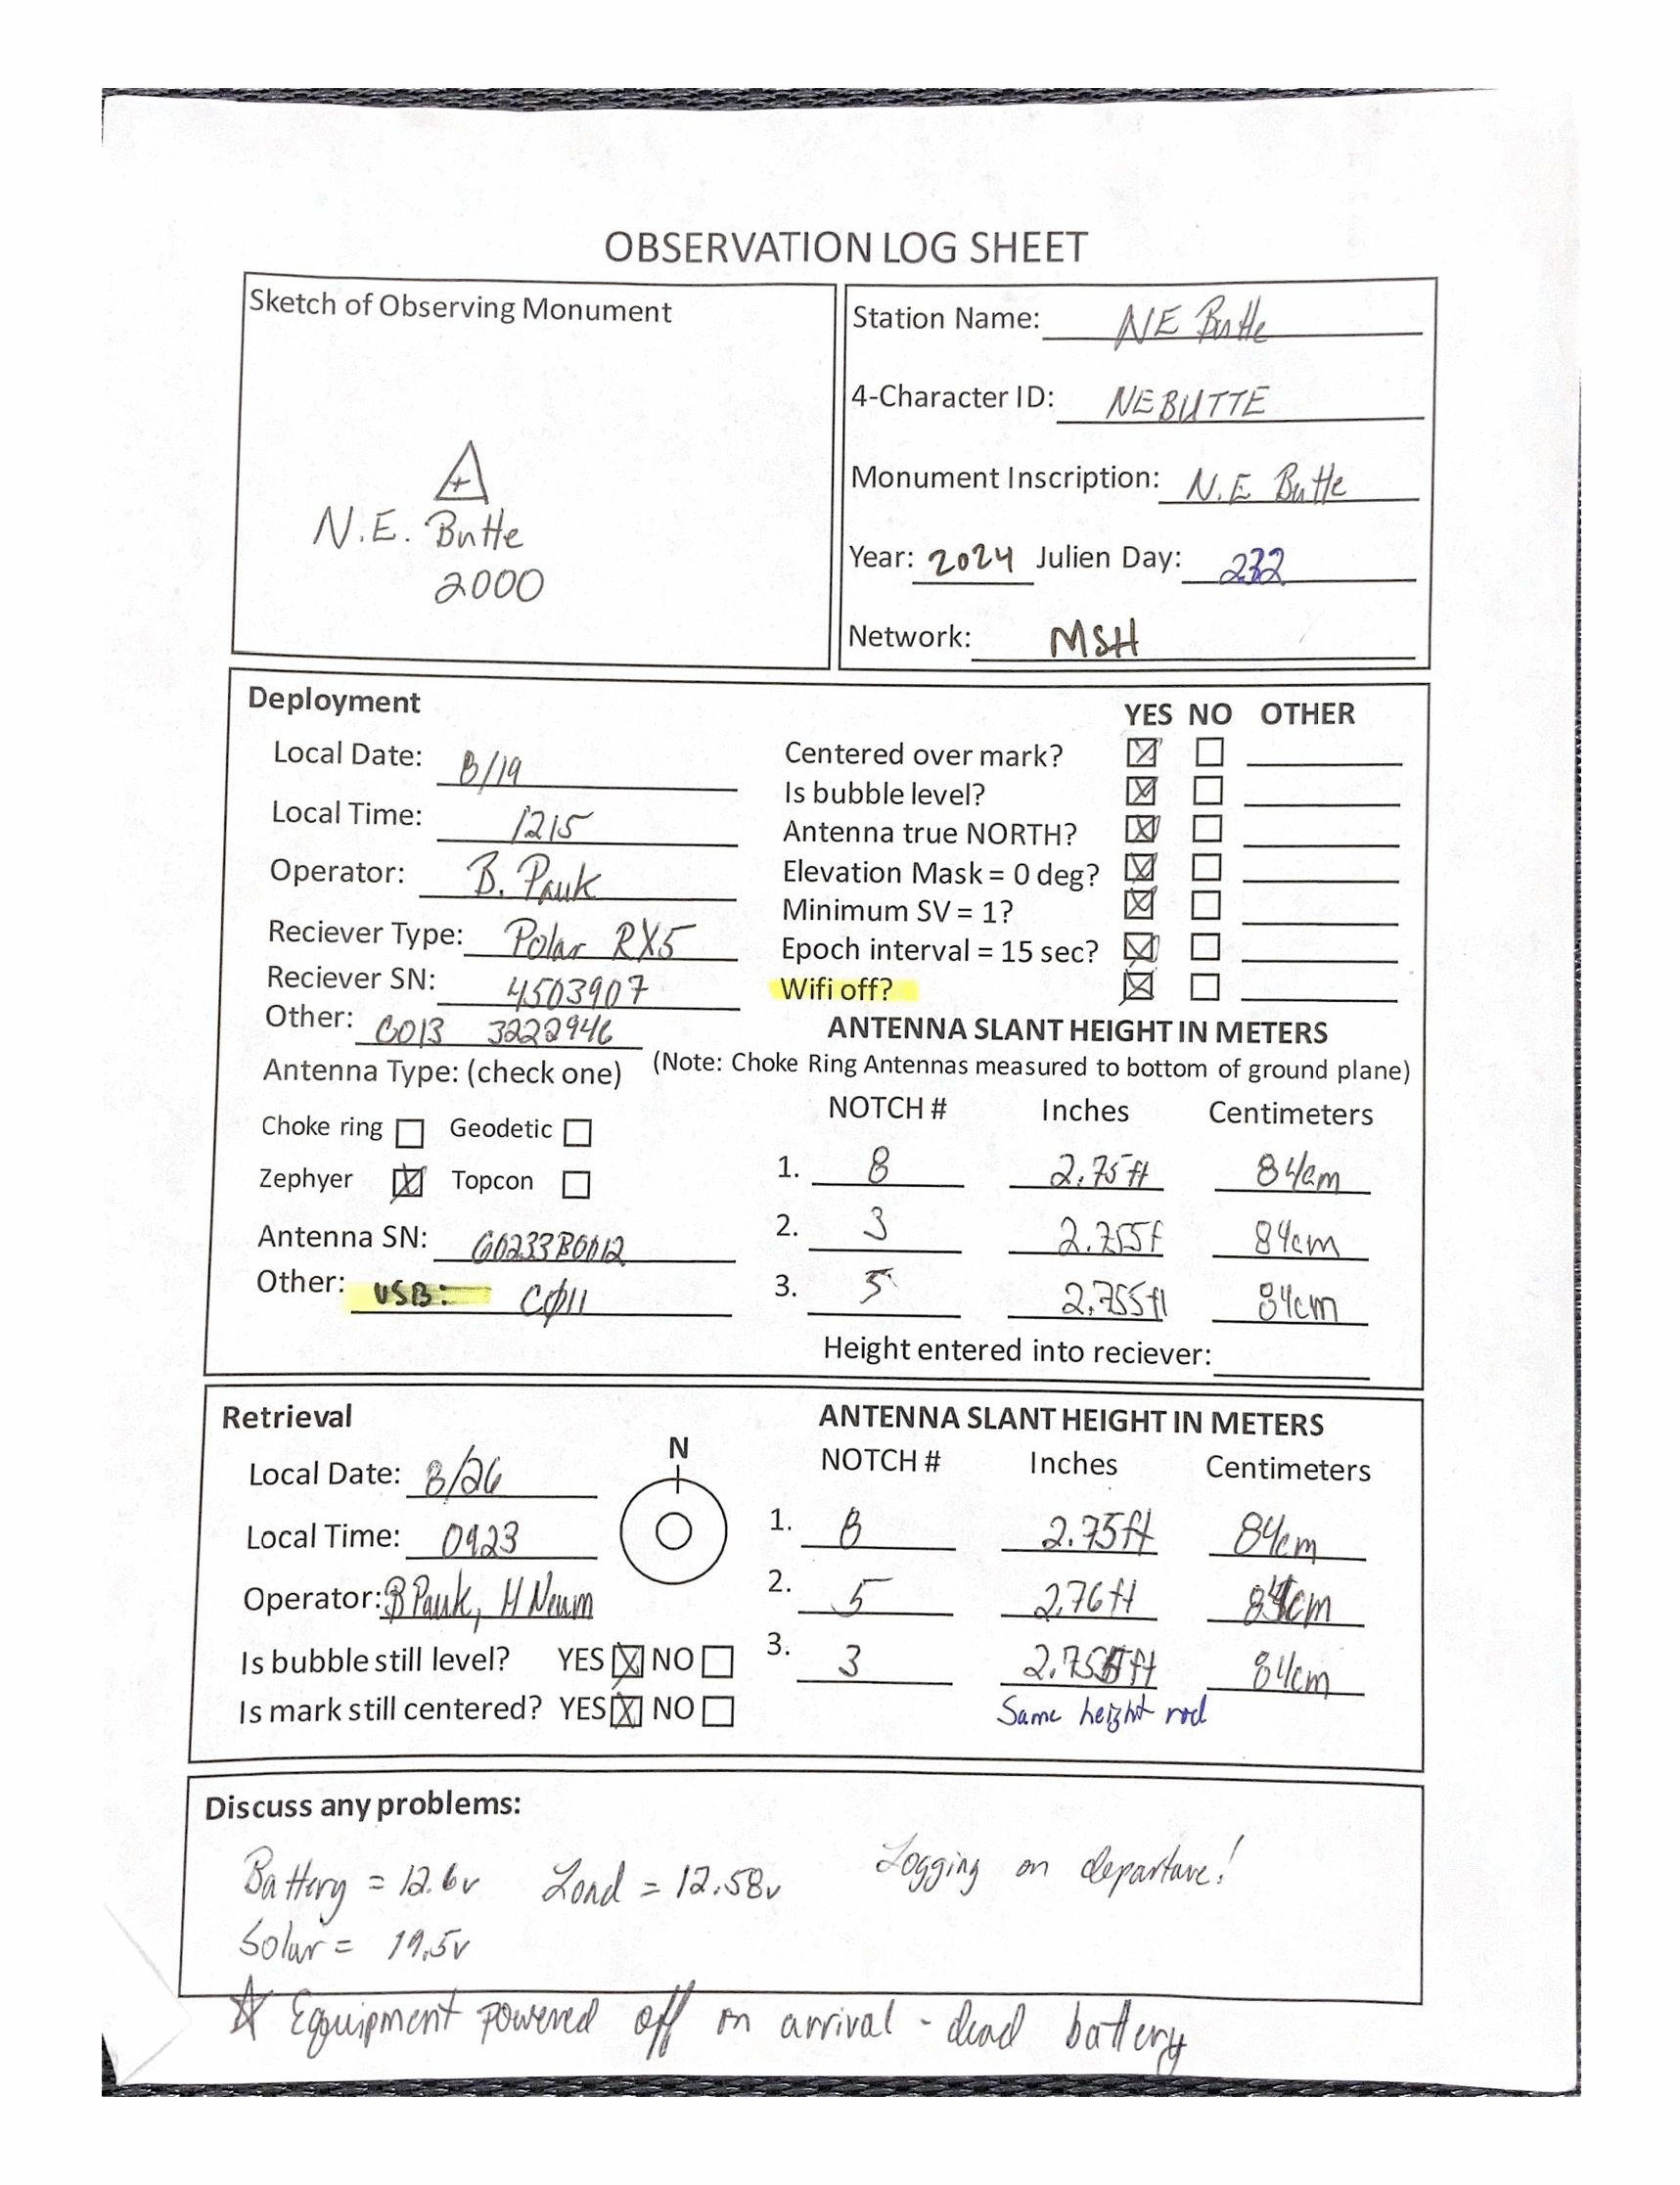 OBSERVATION LOG SHEET
Sketch of Observing Monument
N.E. Butte
2000
Station Name: NE Butte
4-Character ID: NEBUTTE
Monument Inscription: N.E Butte
Year: 2024 Julien Day: 232
Network: MSH
Deployment
Local Date: 8/19
Local Time: 1215
Operator: B. Pauk
Reciever Type: Polar RX5
Reciever SN: 4503907
Other: C013 3222946
Antenna Type: (check one)
Choke ring Geodetic
Zephyer Topcon
Antenna SN:
Other: USB: C011
YES NO OTHER
Centered over mark?
Is bubble level?
Antenna true NORTH?
Elevation Mask = 0 deg?
Minimum SV = 1?
Epoch interval = 15 sec?
Wifi off?
ANTENNA SLANT HEIGHT IN METERS
(Note: Choke Ring Antennas measured to bottom of ground plane)
NOTCH # Inches Centimeters
1. 8 2.75ft 84cm
2. 3 2.755f 84cm
3. 5 2.755ft 84cm
Height entered into reciever:
Retrieval
Local Date: 8/26
Local Time: 0923
Operator: B Pauk, H Neum
Is bubble still level? YES NO
Is mark still centered? YES NO
N
ANTENNA SLANT HEIGHT IN METERS
NOTCH # Inches Centimeters
1. 8 2.75ft 84cm
2. 5 2.76ft 84cm
3. 3 2.755ft 84cm
Same height rod
Discuss any problems:
Battery = 12.6v Load = 12.58v Logging on departure!
Solar = 19.5v
Equipment powered off on arrival - dead battery